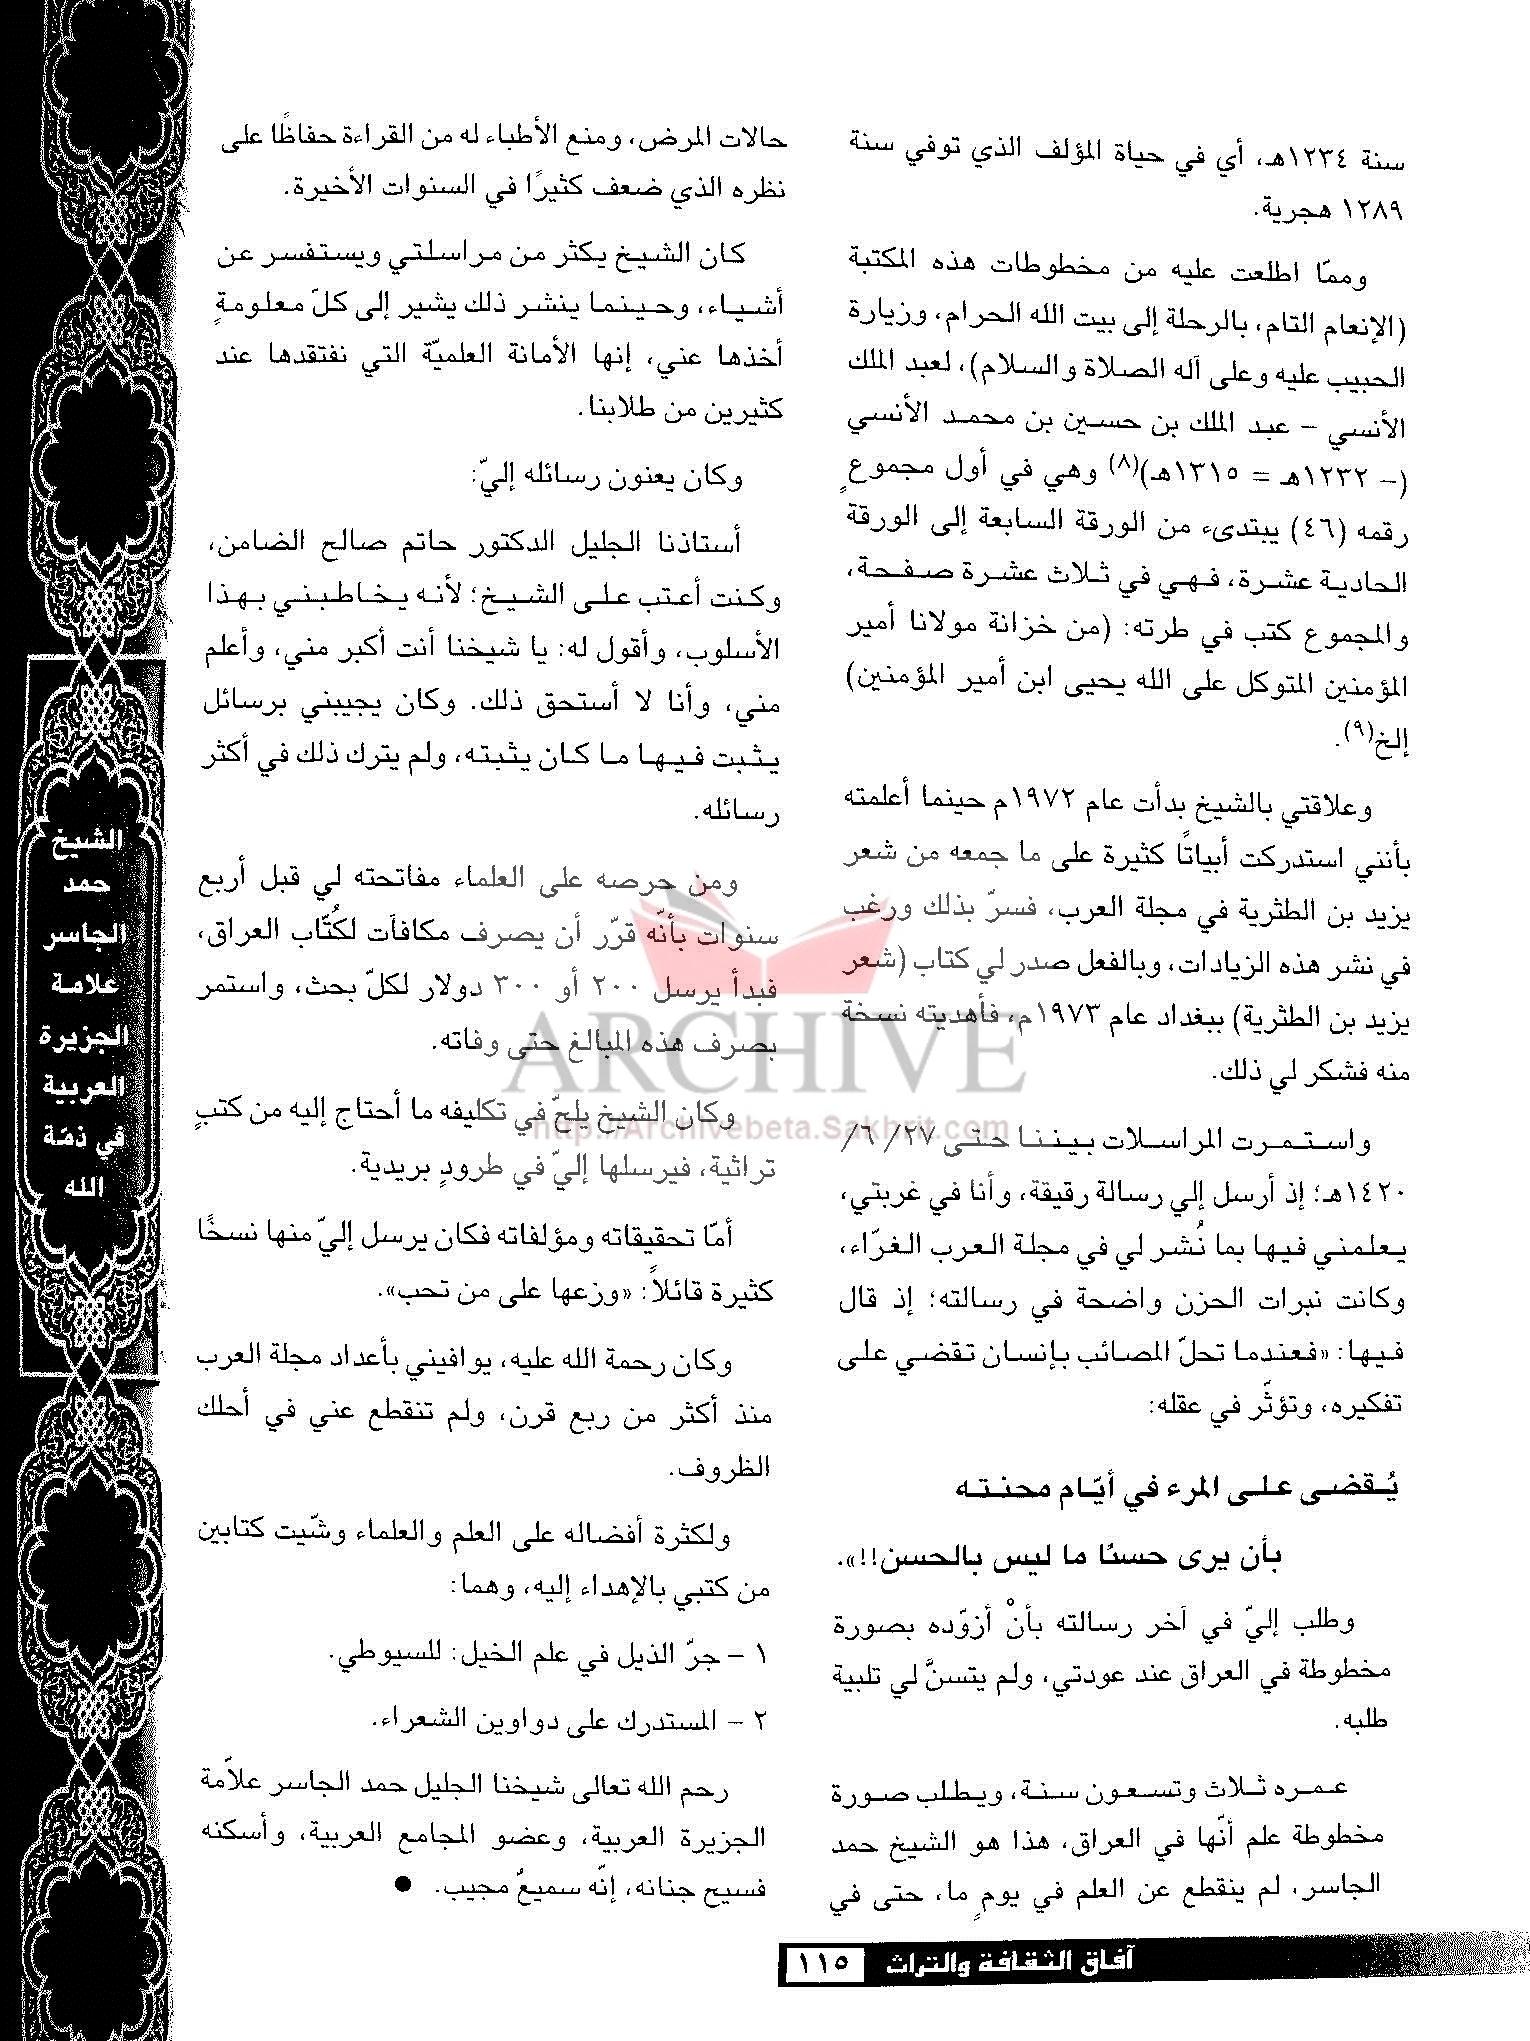 سنة ١٢٣٤هـ، أي في حياة المؤلف الذي توفي سنة
١٢٨٩ هجرية.
وممّا اطلعت عليه من مخطوطات هذه المكتبة
(الإنعام التام، بالرحلة إلى بيت الله الحرام، وزيارة
الحبيب عليه وعلى آله الصلاة والسلام)، لعبد الملك
الأنسي - عبد الملك بن حسين بن محمد الأنسي
(- ١٢٣٢هـ = ١٣١٥هـ)(٨) وهي في أول مجموعٍ
رقمه (٤٦) يبتدىء من الورقة السابعة إلى الورقة
الحادية عشرة، فهي في ثلاث عشرة صفحة،
والمجموع كتب في طرته: (من خزانة مولانا أمير
المؤمنين المتوكل على الله يحيى ابن أمير المؤمنين)
إلخ(٩).
وعلاقتي بالشيخ بدأت عام ١٩٧٢م حينما أعلمته
بأنني استدركت أبياتًا كثيرة على ما جمعه من شعر
يزيد بن الطثرية في مجلة العرب، فسرّ بذلك ورغب
في نشر هذه الزيادات، وبالفعل صدر لي كتاب (شعر
يزيد بن الطثرية) ببغداد عام ١٩٧٣م، فأهديته نسخة
منه فشكر لي ذلك.
واستمرت المراسلات بيننا حتى ٢٧/ ٦/
١٤٢٠هـ؛ إذ أرسل إلي رسالة رقيقة، وأنا في غربتي،
يعلمني فيها بما نُشر لي في مجلة العرب الغرّاء،
وكانت نبرات الحزن واضحة في رسالته؛ إذ قال
فيها: «فعندما تحلّ المصائب بإنسان تقضي على
تفكيره، وتؤثّر في عقله:
يُقضى على المرء في أيّام محنته
بأن يرى حسنًا ما ليس بالحسن!!».
وطلب إليّ في آخر رسالته بأنْ أزوّده بصورة
مخطوطة في العراق عند عودتي، ولم يتسنَّ لي تلبية
طلبه.
عمره ثلاث وتسعون سنة، ويطلب صورة
مخطوطة علم أنّها في العراق، هذا هو الشيخ حمد
الجاسر، لم ينقطع عن العلم في يومٍ ما، حتى في
حالات المرض، ومنع الأطباء له من القراءة حفاظًا على
نظره الذي ضعف كثيرًا في السنوات الأخيرة.
كان الشيخ يكثر من مراسلتي ويستفسر عن
أشياء، وحينما ينشر ذلك يشير إلى كلّ معلومةٍ
أخذها عني، إنها الأمانة العلميّة التي نفتقدها عند
كثيرين من طلابنا.
وكان يعنون رسائله إليّ:
أستاذنا الجليل الدكتور حاتم صالح الضامن،
وكنت أعتب على الشيخ؛ لأنه يخاطبني بهذا
الأسلوب، وأقول له: يا شيخنا أنت أكبر مني، وأعلم
مني، وأنا لا أستحق ذلك. وكان يجيبني برسائل
يثبت فيها ما كان يثبته، ولم يترك ذلك في أكثر
رسائله.
ومن حرصه على العلماء مفاتحته لي قبل أربع
سنوات بأنّه قرّر أن يصرف مكافآت لكُتّاب العراق،
فبدأ يرسل ٢٠٠ أو ٣٠٠ دولار لكلّ بحث، واستمر
بصرف هذه المبالغ حتى وفاته.
وكان الشيخ يلحّ في تكليفه ما أحتاج إليه من كتبٍ
تراثية، فيرسلها إليّ في طرودٍ بريدية.
أمّا تحقيقاته ومؤلفاته فكان يرسل إليّ منها نسخًا
كثيرة قائلاً: «وزعها على من تحب».
وكان رحمة الله عليه، يوافيني بأعداد مجلة العرب
منذ أكثر من ربع قرن، ولم تنقطع عني في أحلك
الظروف.
ولكثرة أفضاله على العلم والعلماء وشّيت كتابين
من كتبي بالإهداء إليه، وهما:
١ - جرّ الذيل في علم الخيل: للسيوطي.
٢ - المستدرك على دواوين الشعراء.
رحم الله تعالى شيخنا الجليل حمد الجاسر علاّمة
الجزيرة العربية، وعضو المجامع العربية، وأسكنه
فسيح جنانه، إنّه سميعٌ مجيب. ●
الشيخ
حمد
الجاسر
علامة
الجزيرة
العربية
في ذمّة
الله
ARCHIVE
http://Archivebeta.Sakhrit.com
آفاق الثقافة والتراث ١١٥